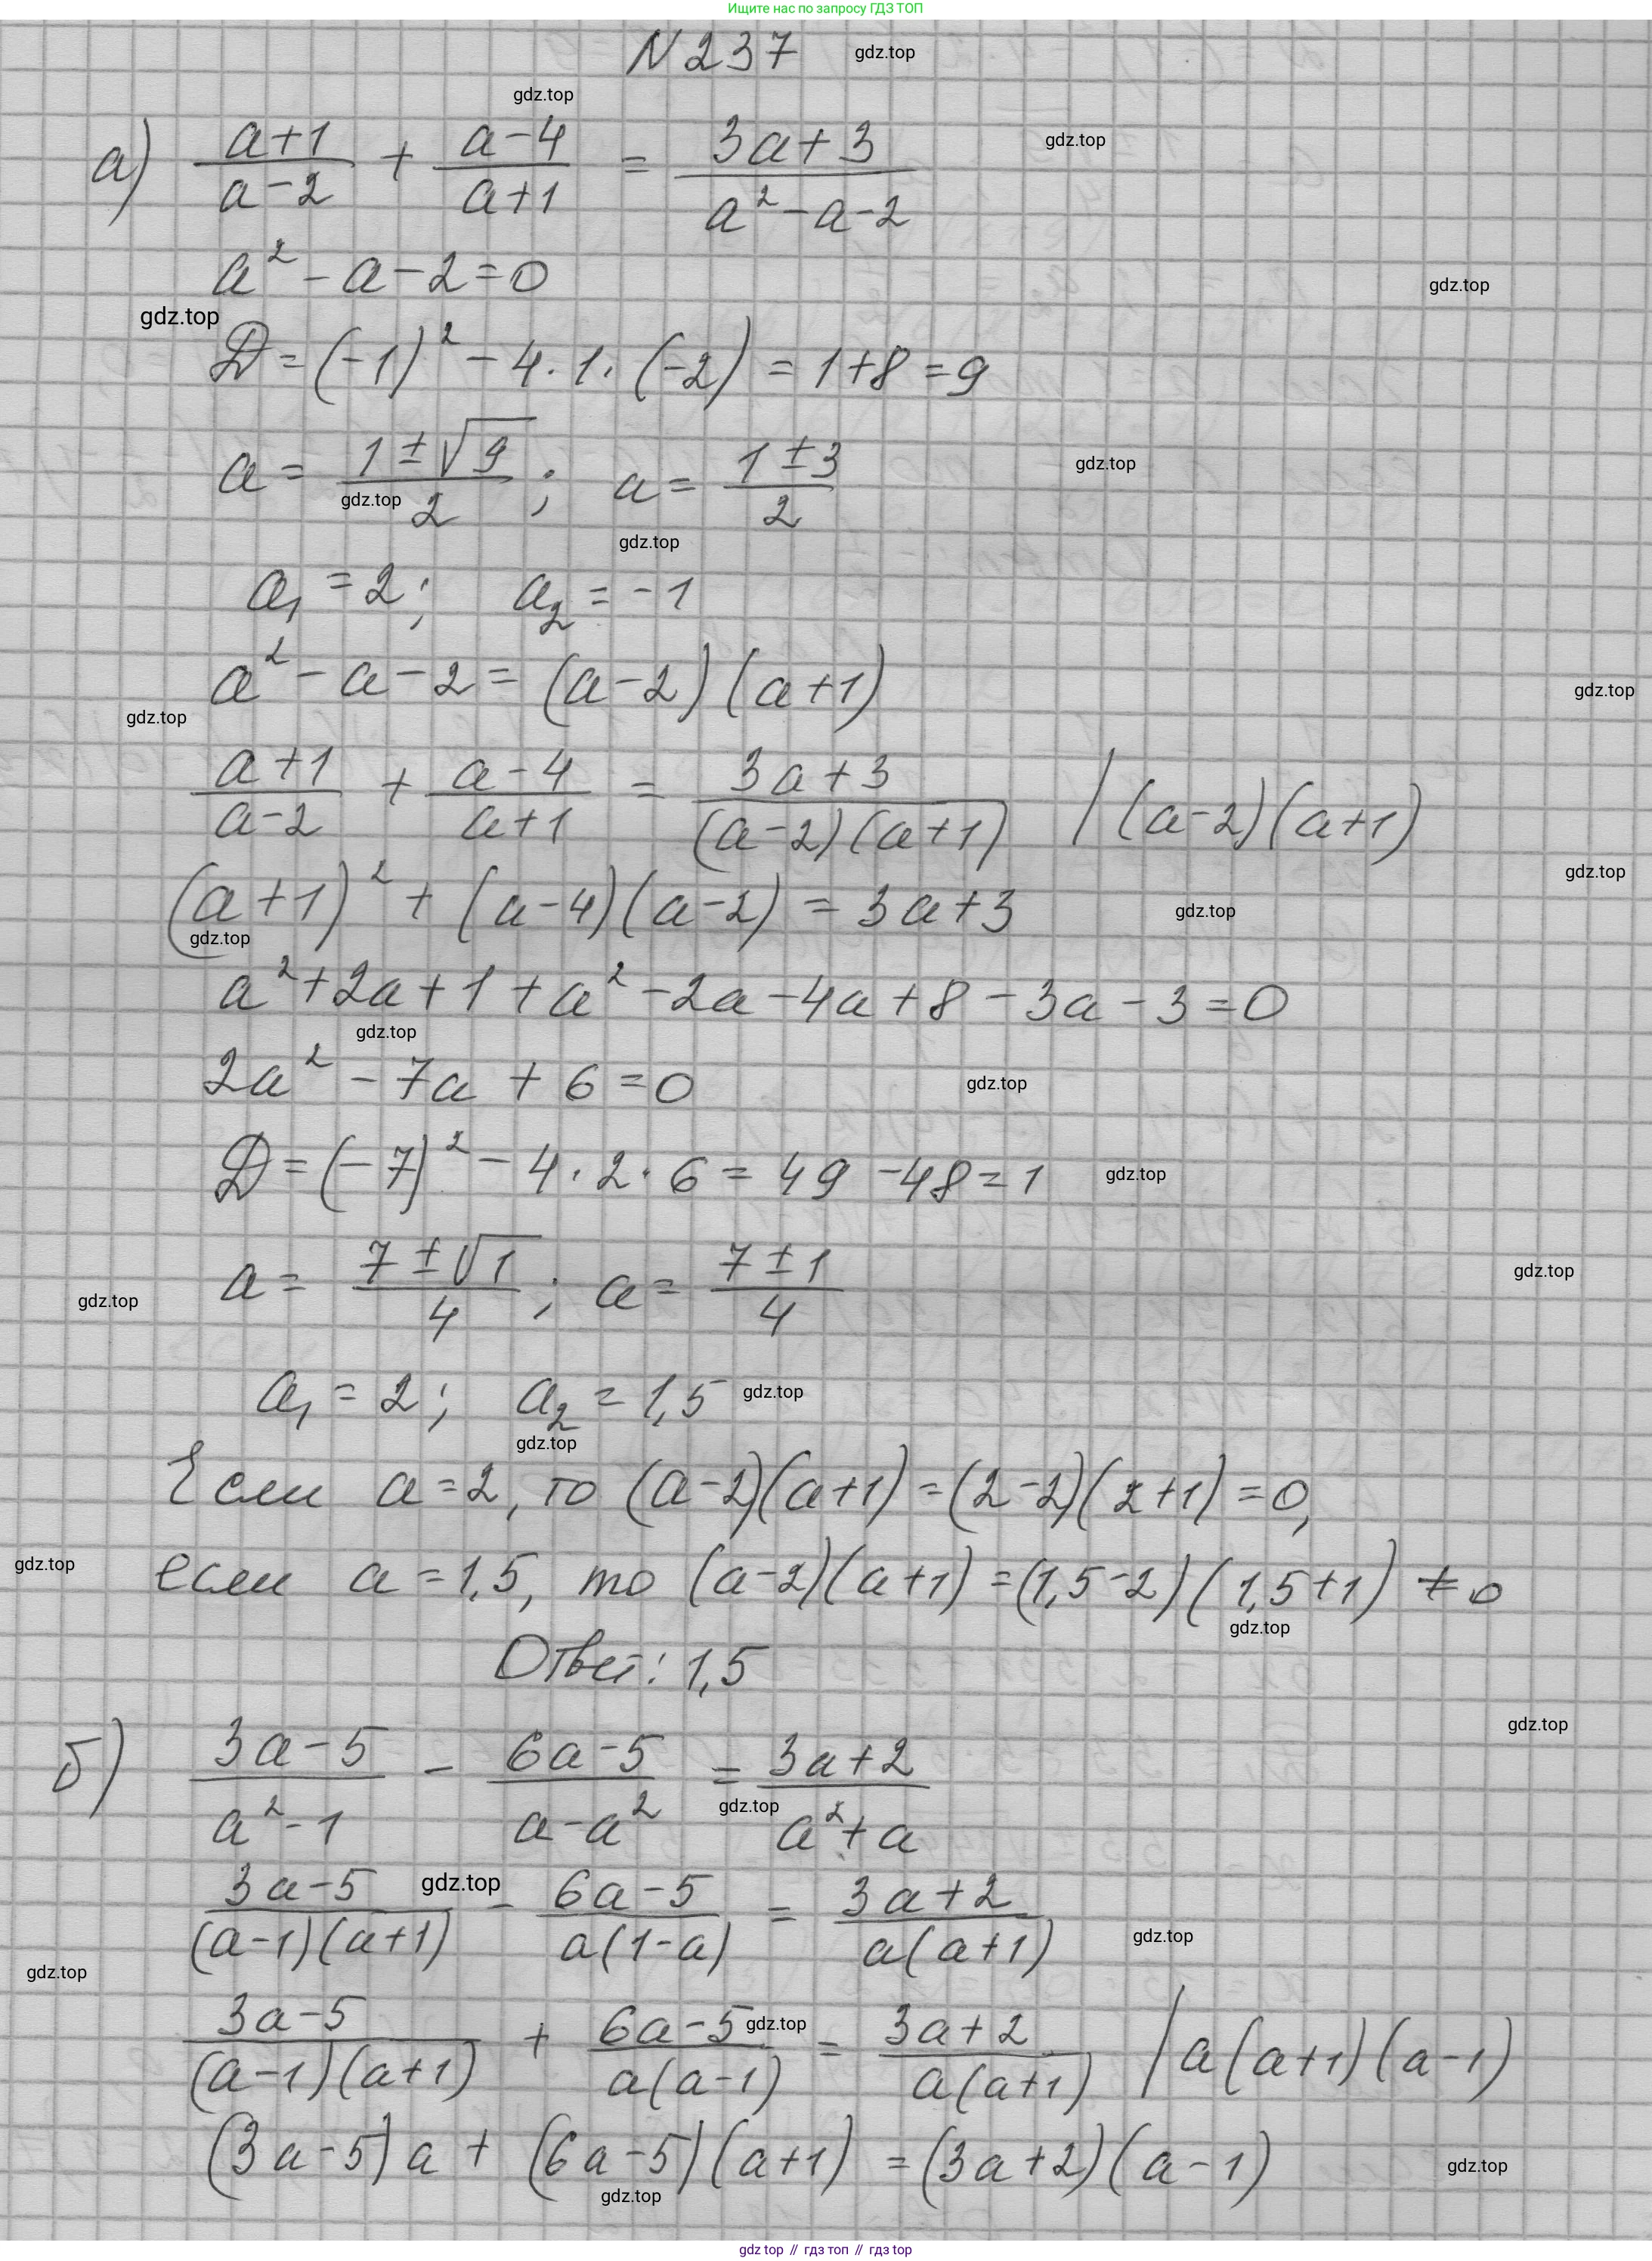 Ищите нас по запросу ГДЗ ТОП
N 237 gdz.top
gdz.top
а) (a+1)/(a-2) + (a-4)/(a+1) = (3a+3)/(a²-a-2) gdz.top
a² - a - 2 = 0 gdz.top
gdz.top
D = (-1)² - 4·1·(-2) = 1+8 = 9
a = (1±√9)/2 ; a = (1±3)/2 gdz.top
gdz.top
gdz.top
a₁ = 2; a₂ = -1
a² - a - 2 = (a-2)(a+1) gdz.top
gdz.top
(a+1)/(a-2) + (a-4)/(a+1) = (3a+3)/((a-2)(a+1)) / (a-2)(a+1)
gdz.top
(a+1)² + (a-4)(a-2) = 3a+3 gdz.top
gdz.top
a² + 2a + 1 + a² - 2a - 4a + 8 - 3a - 3 = 0
gdz.top
2a² - 7a + 6 = 0 gdz.top
D = (-7)² - 4·2·6 = 49 - 48 = 1 gdz.top
a = (7±√1)/4 ; a = (7±1)/4 gdz.top
gdz.top
a₁ = 2; a₂ = 1,5 gdz.top
gdz.top
Если a = 2, то (a-2)(a+1) = (2-2)(2+1) = 0,
gdz.top
если a = 1,5, то (a-2)(a+1) = (1,5-2)(1,5+1) ≠ 0
gdz.top
Ответ: 1,5
gdz.top
б) (3a-5)/(a²-1) - (6a-5)/(a-a²) = (3a+2)/(a²+a)
gdz.top
gdz.top
(3a-5)/((a-1)(a+1)) - (6a-5)/(a(1-a)) = (3a+2)/(a(a+1)) gdz.top
gdz.top
(3a-5)/((a-1)(a+1)) + (6a-5)/(a(a-1)) = (3a+2)/(a(a+1)) / a(a+1)(a-1)
gdz.top
(3a-5)a + (6a-5)(a+1) = (3a+2)(a-1) gdz.top
gdz.top
gdz top // гдз топ // гдз top